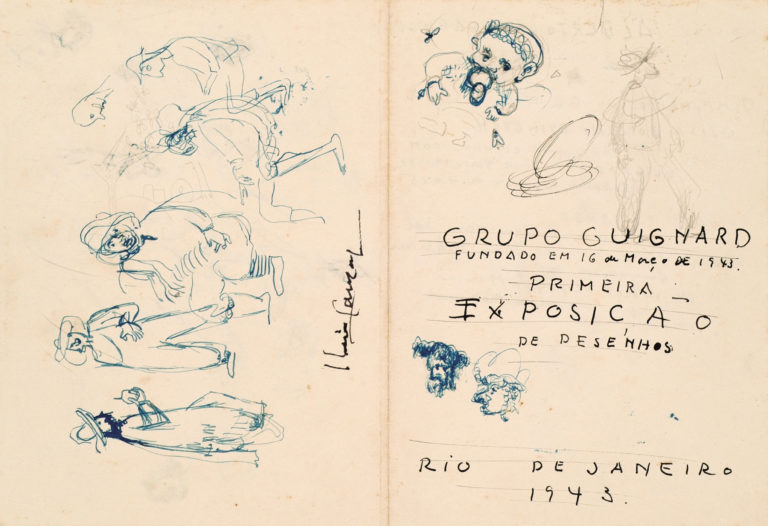 GRUPO GUIGNARD
FUNDADO EM 16 de Março DE 1943.
PRIMEIRA
EXPOSIÇÃO
DE DESENHOS
RIO DE JANEIRO
1943.